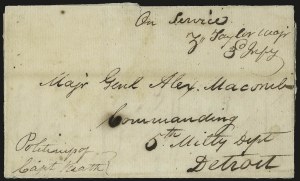 On Service
Z. Taylor Maj
3d Infy
Majr Genl Alex. Macomb
Commanding
5th Milty Dept
Detroit
Politeness of
Capt Heath